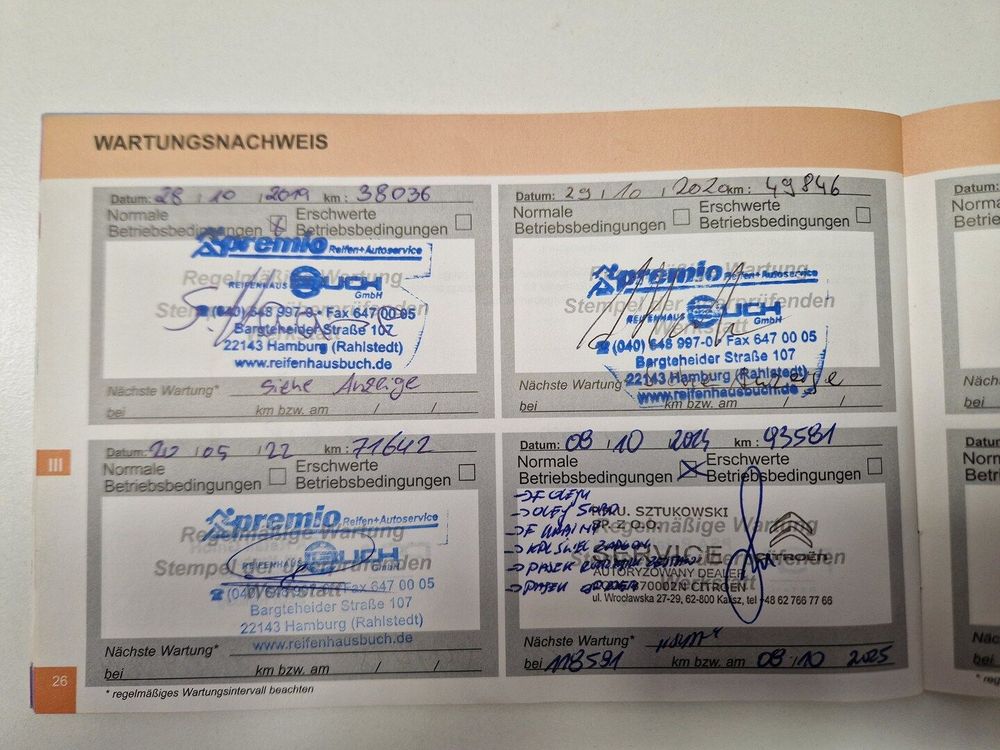 WARTUNGSNACHWEIS
Datum: 28 / 10 / 2019 km : 38036
Normale Betriebsbedingungen
Erschwerte Betriebsbedingungen
premio Reifen+Autoservice
Regelmäßige Wartung
REIFENHAUS BUCH GmbH
Stempel der überprüfenden
(040) 648 997-0 • Fax 647 00 05
Werkstatt
Bargteheider Straße 107
22143 Hamburg (Rahlstedt)
www.reifenhausbuch.de
Nächste Wartung* siehe Anzeige
bei km bzw. am / /
Datum: 29 / 10 / 2020 km : 49846
Normale Betriebsbedingungen
Erschwerte Betriebsbedingungen
premio Reifen+Autoservice
Wartung
Stempel der überprüfenden
REIFENHAUS BUCH GmbH
Werkstatt
(040) 648 997-0 Fax 647 00 05
Bargteheider Straße 107
22143 Hamburg (Rahlstedt)
www.reifenhausbuch.de
Nächste Wartung siehe Anzeige
bei km bzw. am / /
III
Datum: 20 / 05 / 22 km : 71642
Normale Betriebsbedingungen
Erschwerte Betriebsbedingungen
premio Reifen+Autoservice
Wartung
REIFENHAUS BUCH GmbH
Stempel der überprüfenden
Werkstatt
(040) Fax 647 00 05
Bargteheider Straße 107
22143 Hamburg (Rahlstedt)
www.reifenhausbuch.de
Nächste Wartung*
bei km bzw. am / /
Datum: 08 / 10 / 2024 km : 93581
Normale Betriebsbedingungen
Erschwerte Betriebsbedingungen
→ F OLEJU
→ OLEJ
P.H.U. SZTUKOWSKI
SP. Z O.O.
Regelmäßige Wartung
CITROËN
SERVICE
überprüfenden
AUTORYZOWANY DEALER
CITROEN
ul. Wrocławska 27-29, 62-800 Kalisz, tel +48 62 766 77 66
Nächste Wartung*
bei 118581 km bzw. am 08 / 10 2025
26
* regelmäßiges Wartungsintervall beachten
Datum: